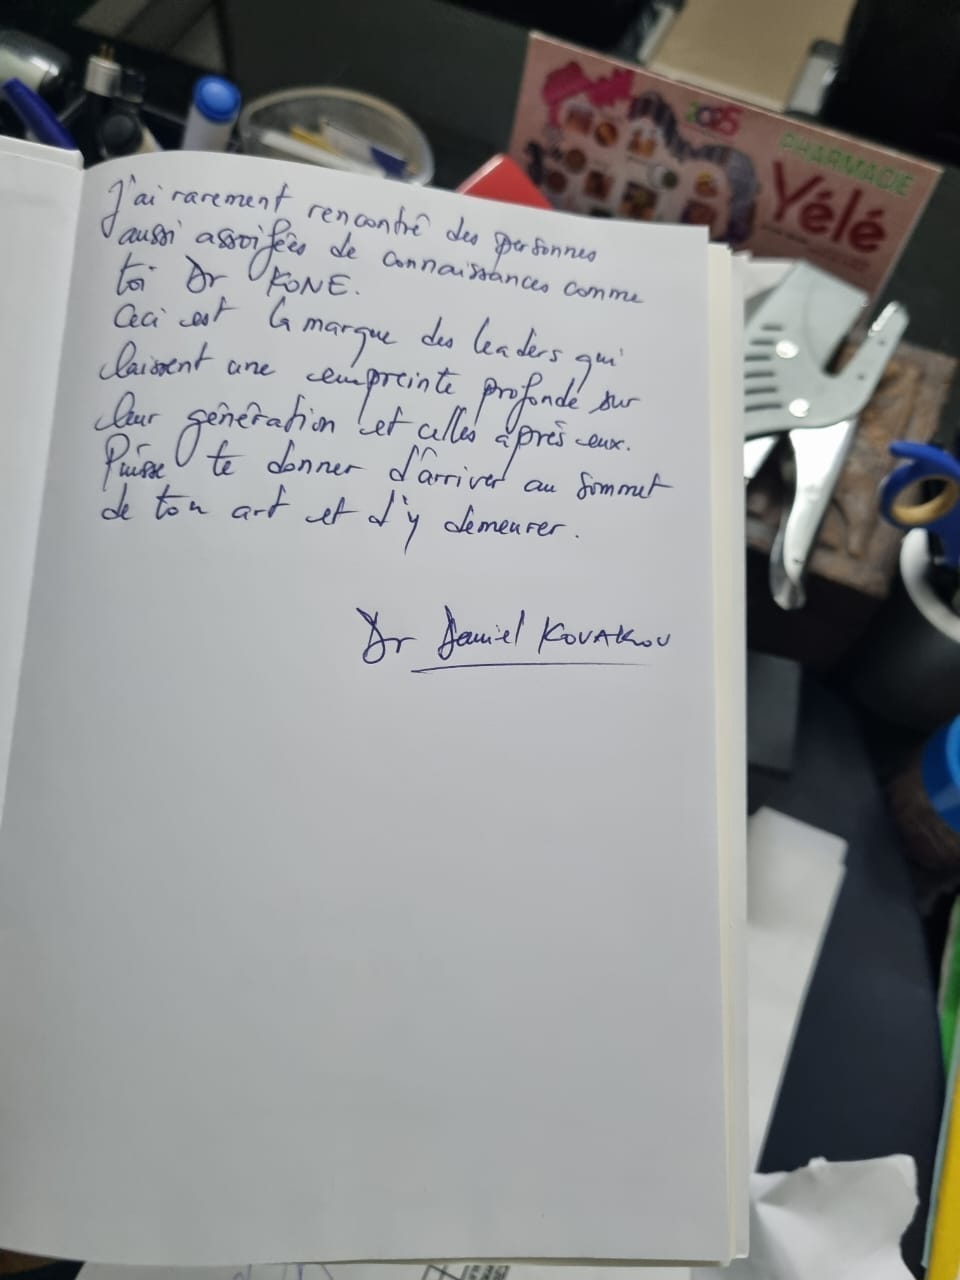 J'ai rarement rencontré des personnes
aussi assoifées de connaissances comme
toi Dr KONE.
Ceci est la marque des leaders qui
laissent une empreinte profonde sur
leur génération et celles après eux.
Puisse te donner d'arriver au sommet
de ton art et d'y demeurer.
Dr Daniel KOUAKOU
2025
PHARMACIE
Yélé